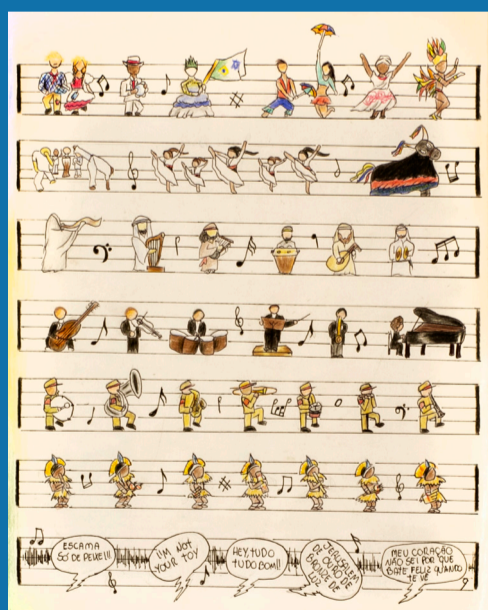 ESCAMA
SÓ DE PEIXE!!!
I'M NOT
YOUR TOY
HEY, TUDO
TUDO BOM!!
JERUSALÉM
DE OURO DE
BRONZE DE
LUZ
MEU CORAÇÃO
NÃO SEI POR QUE
BATE FELIZ QUANDO
TE VÊ